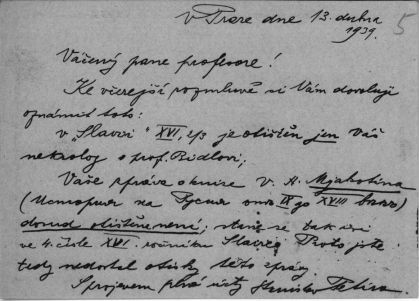 v Praze dne 13. dubna
1939.
5
Vážený pane profesore!
Ke včerejší rozmluvě si Vám dovoluji
oznámit toto:
v „Slavii“ XVI, 2/3 je otištěn jen Váš
nekrolog o prof. Bidlovi;
Vaše zpráva o knize V. A. Mjakotina
(История на Русия от IX до XVIII век)
dosud otištěna není; stane se tak asi
ve 4. čísle XVI. ročníku Slavie. Proto jste
tedy nedostal otisky této zprávy.
S projevem plné úcty Stanislav